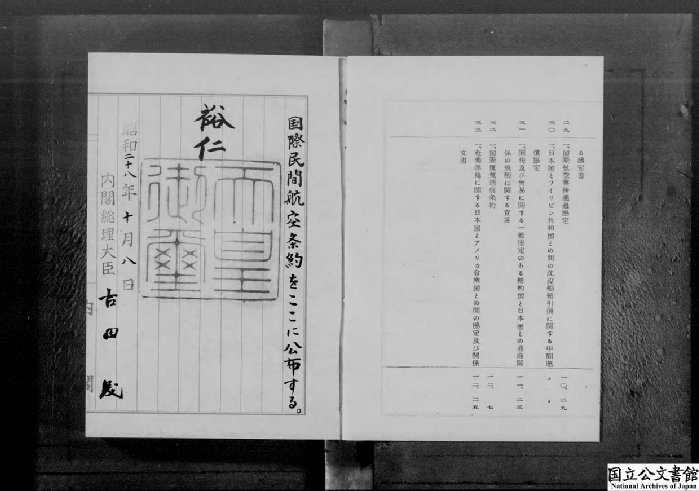 る議定書
二九、国際航空業務通過協定
一〇、二九
三〇、日本国とフィリピン共和国との間の沈没船舶引揚に関する中間賠
償協定
〃 〃
三一、関税及び貿易に関する一般協定のある締約国と日本国との通商関
係の規制に関する宣言
一一、二三
三二、国際電気通信条約
一二、七
三三、奄美群島に関する日本国とアメリカ合衆国との間の協定及び関係
文書
一二、二五
国際民間航空条約をここに公布する。
裕仁
天皇御璽
昭和二十八年十月八日
内閣総理大臣 吉田茂
内閣
国立公文書館
National Archives of Japan